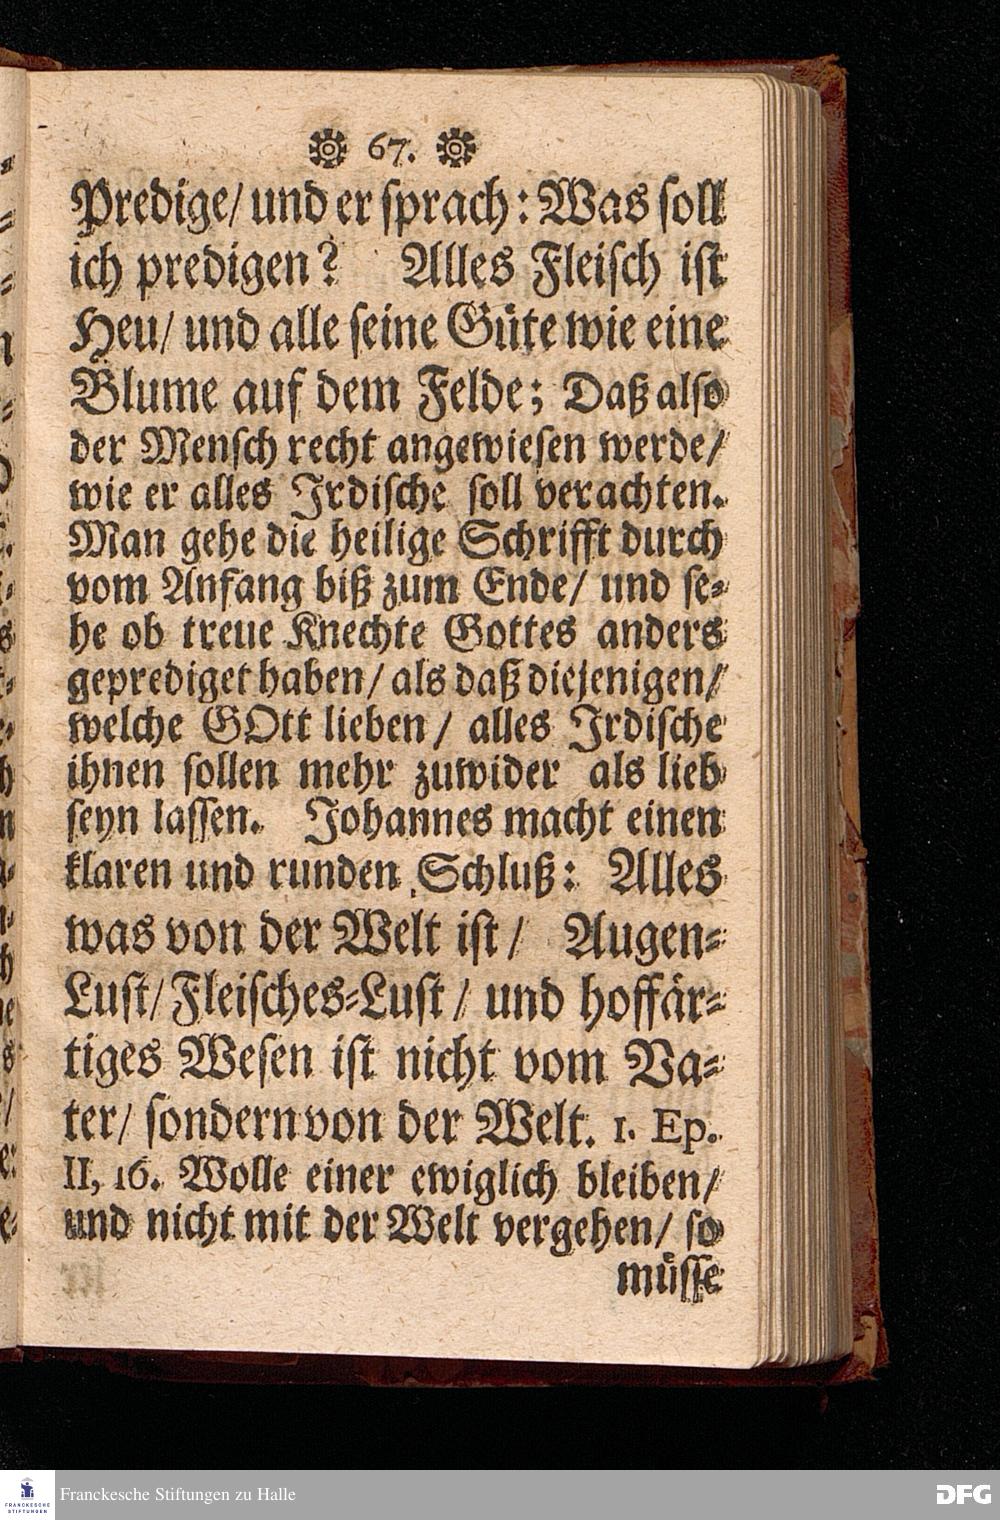 67.
Predige/ und er ſprach: Was ſoll
ich predigen? Alles Fleiſch iſt
Heu/ und alle ſeine Güte wie eine
Blume auf dem Felde; Daß alſo
der Menſch recht angewieſen werde/
wie er alles Irdiſche ſoll verachten.
Man gehe die heilige Schrifft durch
vom Anfang biß zum Ende/ und ſe-
he ob treue Knechte Gottes anders
geprediget haben/ als daß diejenigen/
welche GOtt lieben/ alles Irdiſche
ihnen ſollen mehr zuwider als lieb
ſeyn laſſen. Johannes macht einen
klaren und runden Schluß: Alles
was von der Welt iſt/ Augen-
Luſt/ Fleiſches-Luſt/ und hoffär-
tiges Weſen iſt nicht vom Va-
ter/ ſondern von der Welt. 1. Ep.
II, 16. Wolle einer ewiglich bleiben/
und nicht mit der Welt vergehen/ ſo
müſſe
FRANCKESCHE
STIFTUNGEN
Franckesche Stiftungen zu Halle
DFG